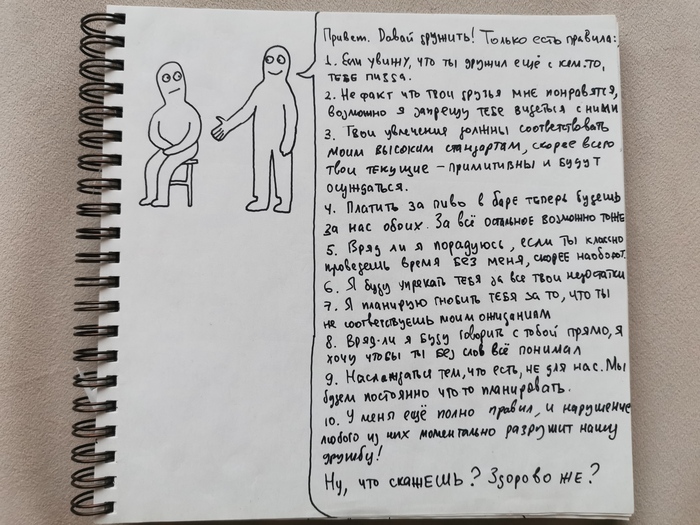 Привет. Давай дружить! Только есть правила:
1. Если увижу, что ты дружил ещё с кем-то,
тебе пизда.
2. Не факт что твои друзья мне понравятся,
возможно я запрещу тебе видеться с ними
3. Твои увлечения должны соответствовать
моим высоким стандартам, скорее всего
твои текущие – примитивны и будут
осуждаться.
4. Платить за пиво в баре теперь будешь
за нас обоих. За всё остальное возможно тоже
5. Вряд ли я порадуюсь, если ты классно
проведешь время без меня, скорее наоборот.
6. Я буду упрекать тебя за все твои недостатки
7. Я планирую гнобить тебя за то, что ты
не соответствуешь моим ожиданиям
8. Вряд-ли я буду говорить с тобой прямо, я
хочу чтобы ты без слов всё понимал
9. Наслаждаться тем, что есть, не для нас. Мы
будем постоянно что то планировать.
10. У меня ещё полно правил, и нарушение
любого из них моментально разрушит нашу
дружбу!
Ну, что скажешь? Здорово же?